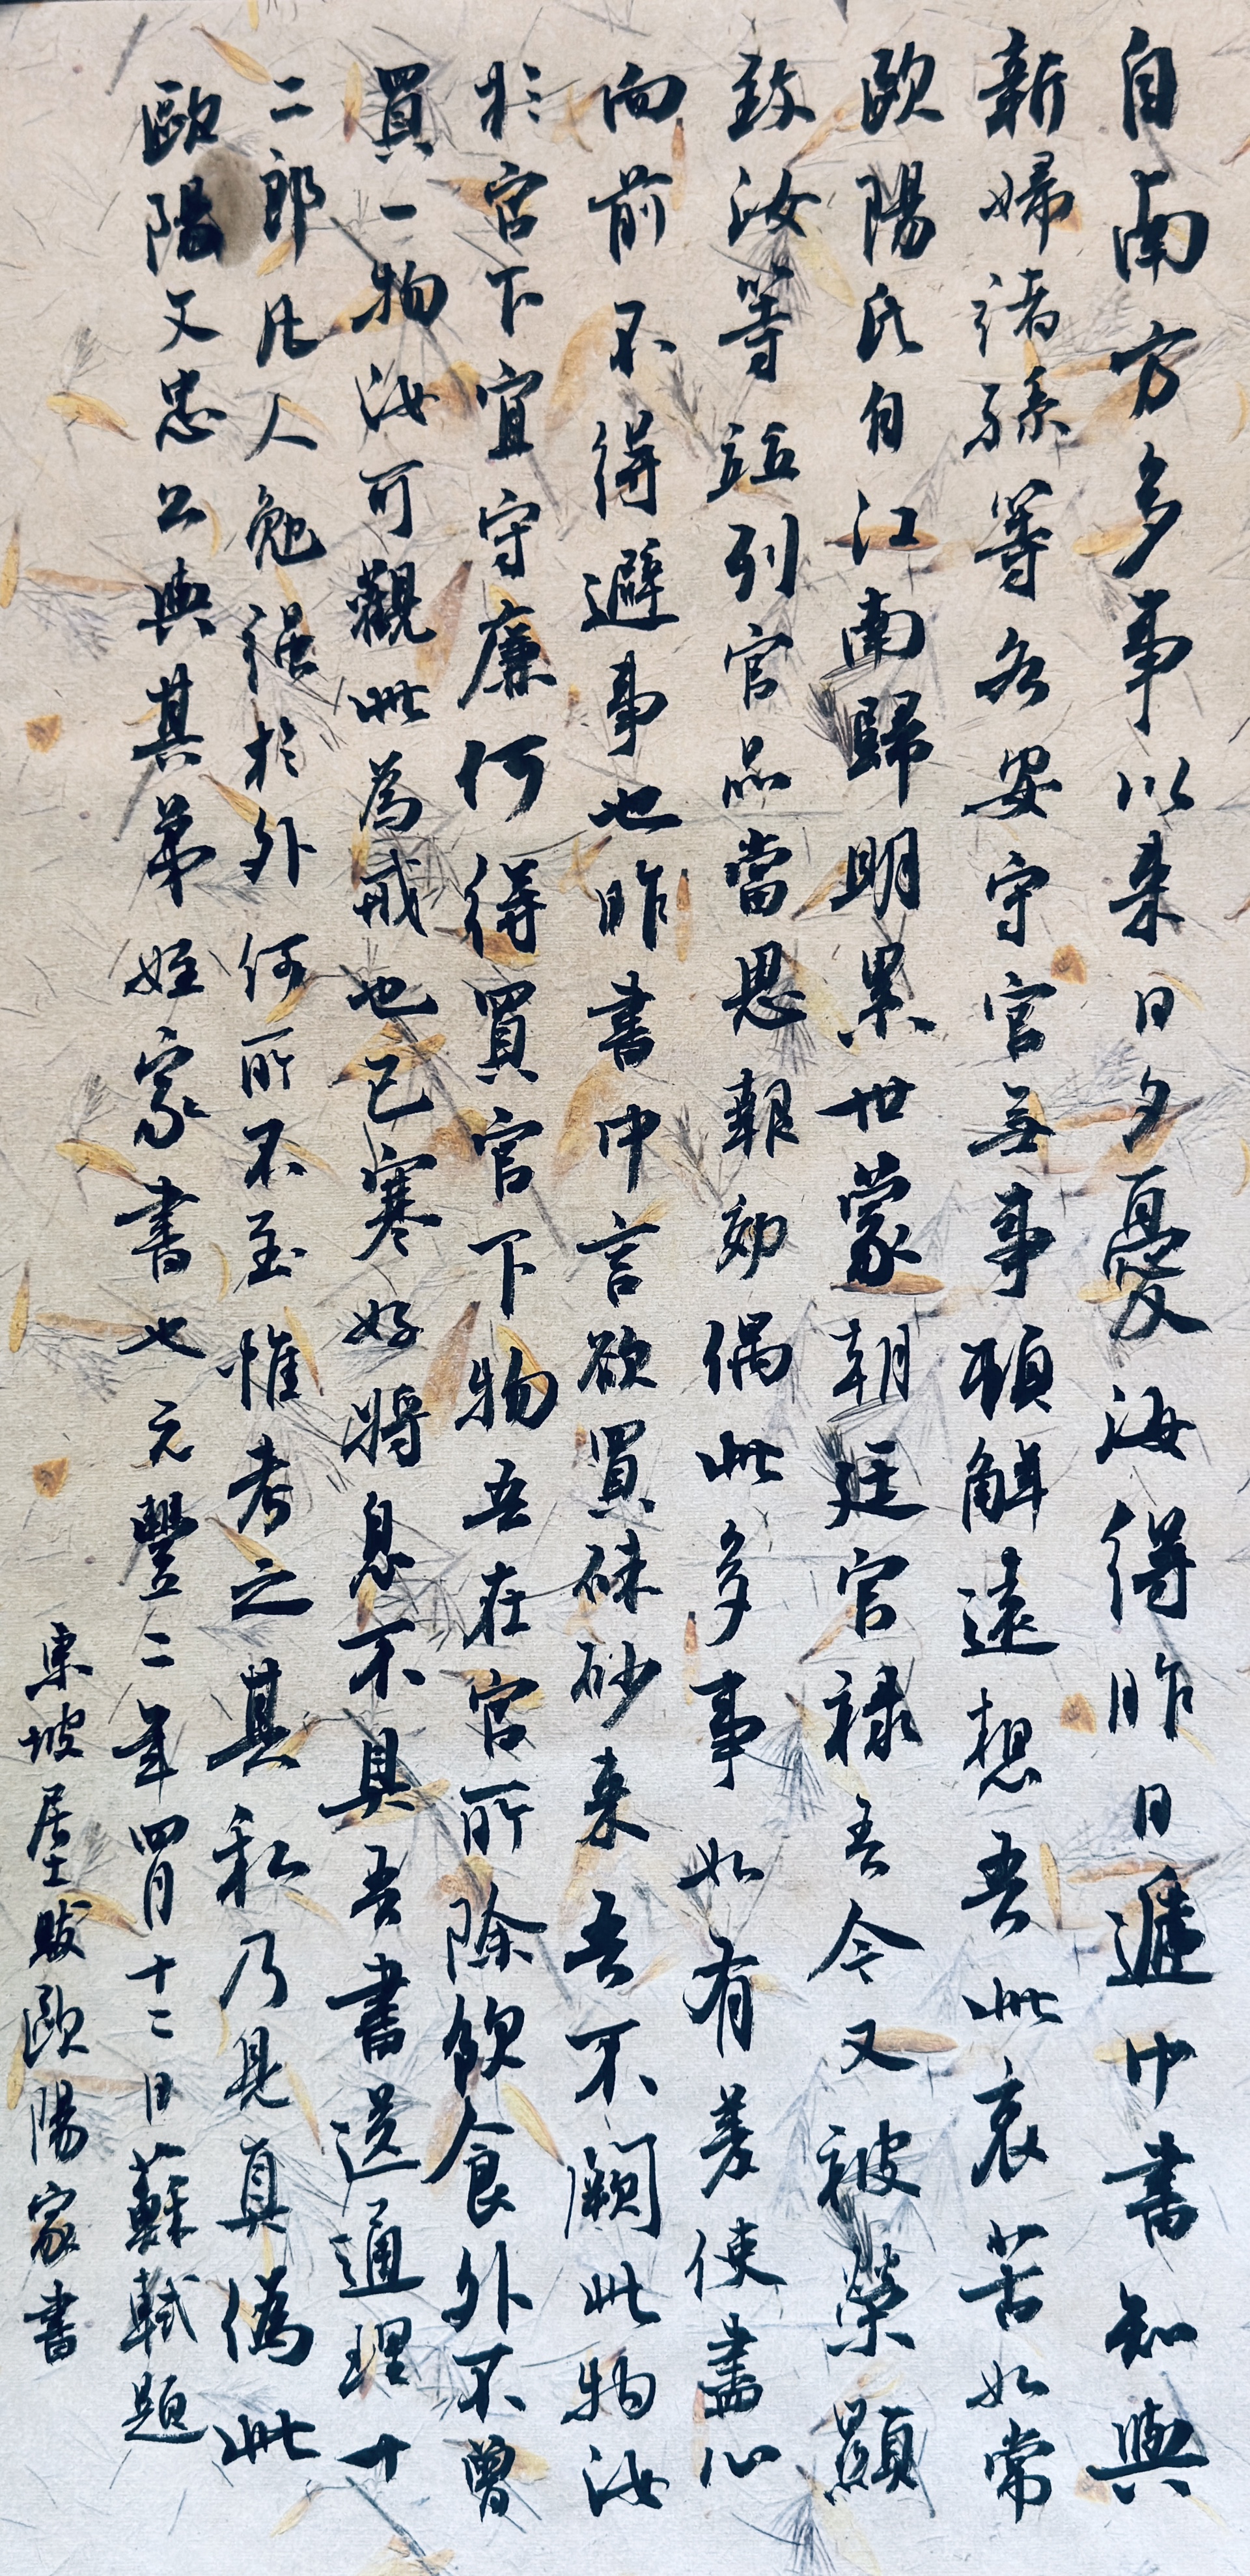 自南方多事以来日夕憂汝得昨日遞中書知與
新婦諸孫等各安守官無事頓解遠想吾此哀苦如常
歐陽氏自江南歸明累世蒙朝廷官禄吾今又被榮顯
致汝等並列官品當思報効偶此多事如有差使盡心
向前不得避事也昨書中言欲買硃砂来吾不闕此物汝
於官下宜守廉何得買官下物吾在官所除飲食外不曾
買一物汝可觀此為戒也已寒好將息不具吾書送通理十
二郎凡人勉强於外何所不至惟考之其私乃見真偽此
歐陽文忠公與其弟姪家書也元豐二年四月十二日蘇軾題
東坡居士跋歐陽家書